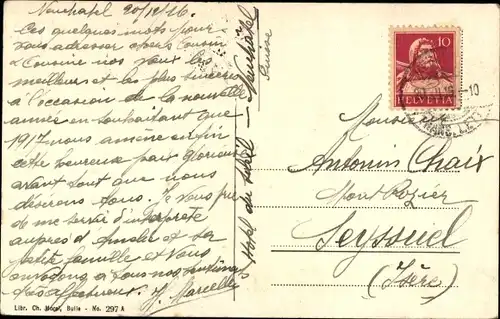 Neuchatel 20/12/16
Ces quelques mots pour
vous adresser chers Cousin
& Cousine nos vœux les
meilleurs et les plus sincères
à l'occasion de la nouvelle
année en souhaitant que
1917 nous amène enfin
cette heureuse paix glorieuse
avant tout que nous
désirons tous. Je vous prie
de me servir d'interprète
auprès d' et sa
petite famille et vous
envoyons à tous nos
très affectueux. J. Marcelle
Libr. Ch. Morel, Bulle - No. 297 A
Hotel du — Neuchatel
Suisse
10
HELVETIA
Monsieur
Antonin Chaix
Mont Rozier
Seyssuel
(Isère)